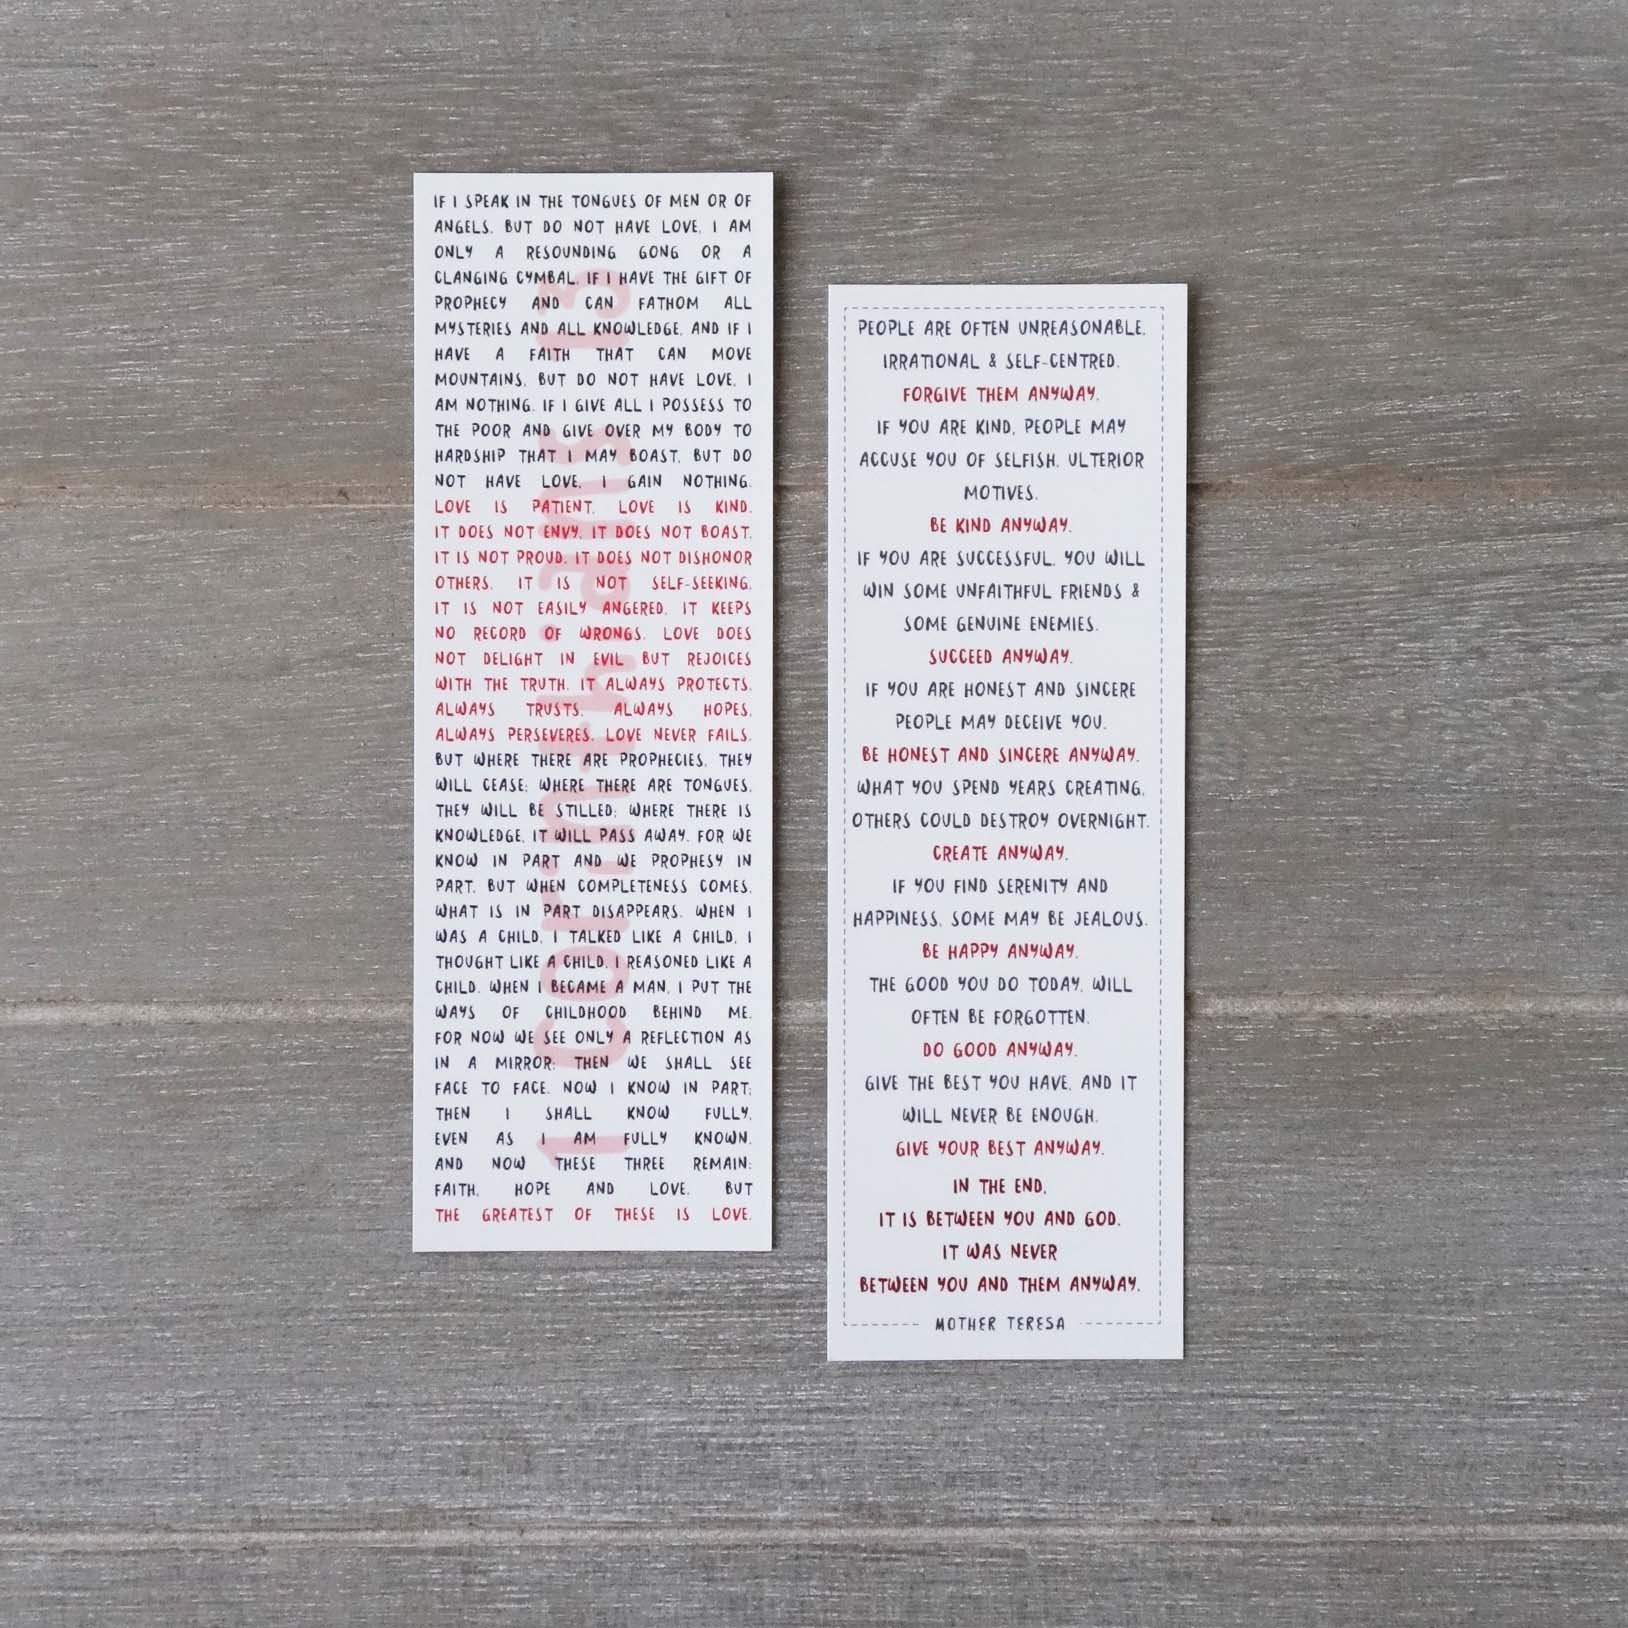 IF I SPEAK IN THE TONGUES OF MEN OR OF
ANGELS, BUT DO NOT HAVE LOVE, I AM
ONLY A RESOUNDING GONG OR A
CLANGING CYMBAL. IF I HAVE THE GIFT OF
PROPHECY AND CAN FATHOM ALL
MYSTERIES AND ALL KNOWLEDGE, AND IF I
HAVE A FAITH THAT CAN MOVE
MOUNTAINS, BUT DO NOT HAVE LOVE, I
AM NOTHING. IF I GIVE ALL I POSSESS TO
THE POOR AND GIVE OVER MY BODY TO
HARDSHIP THAT I MAY BOAST, BUT DO
NOT HAVE LOVE, I GAIN NOTHING.
LOVE IS PATIENT, LOVE IS KIND.
IT DOES NOT ENVY, IT DOES NOT BOAST,
IT IS NOT PROUD. IT DOES NOT DISHONOR
OTHERS, IT IS NOT SELF-SEEKING,
IT IS NOT EASILY ANGERED, IT KEEPS
NO RECORD OF WRONGS. LOVE DOES
NOT DELIGHT IN EVIL BUT REJOICES
WITH THE TRUTH. IT ALWAYS PROTECTS,
ALWAYS TRUSTS, ALWAYS HOPES,
ALWAYS PERSEVERES. LOVE NEVER FAILS.
BUT WHERE THERE ARE PROPHECIES, THEY
WILL CEASE; WHERE THERE ARE TONGUES,
THEY WILL BE STILLED; WHERE THERE IS
KNOWLEDGE, IT WILL PASS AWAY. FOR WE
KNOW IN PART AND WE PROPHESY IN
PART, BUT WHEN COMPLETENESS COMES,
WHAT IS IN PART DISAPPEARS. WHEN I
WAS A CHILD, I TALKED LIKE A CHILD, I
THOUGHT LIKE A CHILD, I REASONED LIKE A
CHILD. WHEN I BECAME A MAN, I PUT THE
WAYS OF CHILDHOOD BEHIND ME.
FOR NOW WE SEE ONLY A REFLECTION AS
IN A MIRROR; THEN WE SHALL SEE
FACE TO FACE. NOW I KNOW IN PART;
THEN I SHALL KNOW FULLY,
EVEN AS I AM FULLY KNOWN.
AND NOW THESE THREE REMAIN:
FAITH, HOPE AND LOVE. BUT
THE GREATEST OF THESE IS LOVE.
1 corinthians 13
PEOPLE ARE OFTEN UNREASONABLE,
IRRATIONAL & SELF-CENTRED.
FORGIVE THEM ANYWAY.
IF YOU ARE KIND, PEOPLE MAY
ACCUSE YOU OF SELFISH, ULTERIOR
MOTIVES.
BE KIND ANYWAY.
IF YOU ARE SUCCESSFUL, YOU WILL
WIN SOME UNFAITHFUL FRIENDS &
SOME GENUINE ENEMIES.
SUCCEED ANYWAY.
IF YOU ARE HONEST AND SINCERE
PEOPLE MAY DECEIVE YOU.
BE HONEST AND SINCERE ANYWAY.
WHAT YOU SPEND YEARS CREATING,
OTHERS COULD DESTROY OVERNIGHT.
CREATE ANYWAY.
IF YOU FIND SERENITY AND
HAPPINESS, SOME MAY BE JEALOUS.
BE HAPPY ANYWAY.
THE GOOD YOU DO TODAY, WILL
OFTEN BE FORGOTTEN.
DO GOOD ANYWAY.
GIVE THE BEST YOU HAVE, AND IT
WILL NEVER BE ENOUGH.
GIVE YOUR BEST ANYWAY.
IN THE END,
IT IS BETWEEN YOU AND GOD.
IT WAS NEVER
BETWEEN YOU AND THEM ANYWAY.
MOTHER TERESA